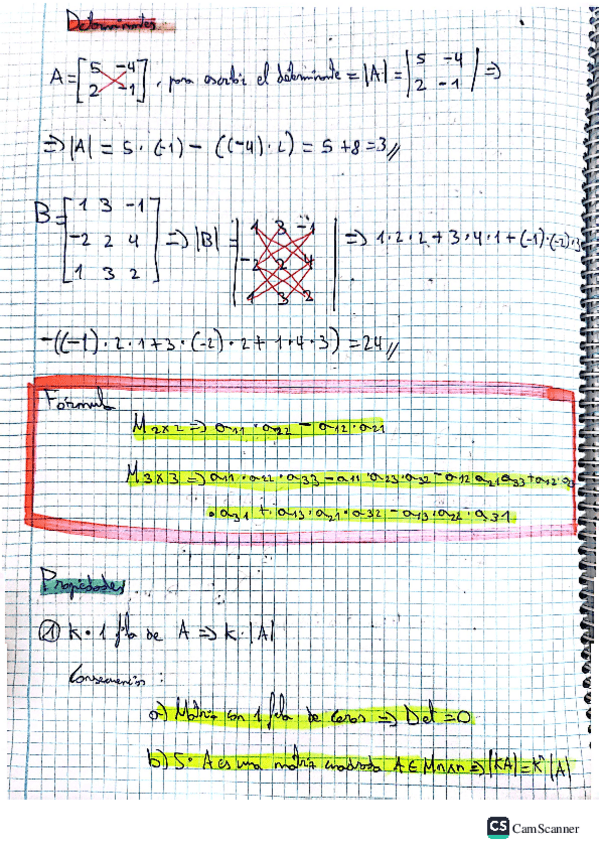 Determinantes
A = [5 -4 2 -1], para escribir el determinante = |A| = |5 -4 2 -1| ⇒
⇒ |A| = 5 · (-1) - ((-4) · 2) = 5 + 8 = 3 //
B = [1 3 -1 -2 2 4 1 3 2] ⇒ |B| = |1 3 -1 -2 2 4 1 3 2| ⇒ 1·2·2 + 3·4·1 + (-1)·(-2)·3
-((-1) · 2 · 1 + 3 · (-2) · 2 + 1 · 4 · 3) = 24 //
Fórmula
M2x2 ⇒ a11 · a22 - a12 · a21
M3x3 ⇒ a11 · a22 · a33 - a11 · a23 · a32 - a12 a21 a33 + a12 · a2
· a31 + a13 · a21 · a32 - a13 · a22 · a31
Propiedades
① K · 1 fila de A ⇒ K · |A|
Consecuencias :
a) Matriz con 1 fila de ceros ⇒ Det = 0
b) S· A es una matriz cuadrada A ∈ Mnxn ⇒ |KA| = K^n |A|
CS CamScanner